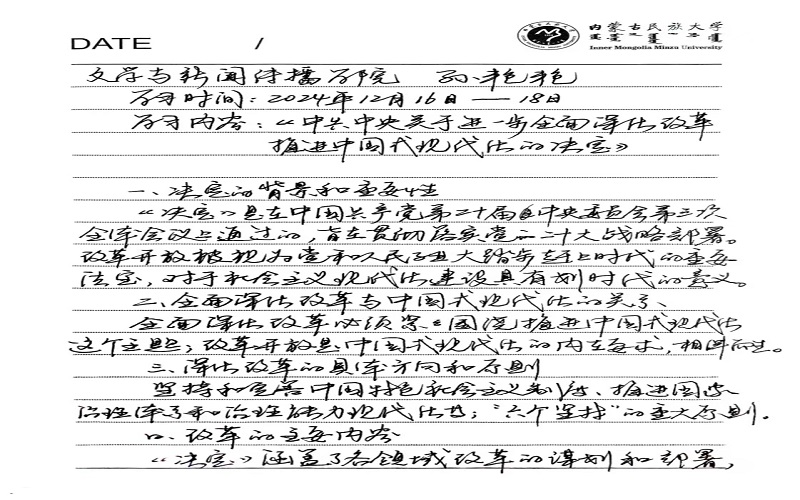 DATE /
内蒙古民族大学
Inner Mongolia Minzu University
文学与新闻传播学院 孙艳艳
学习时间：2024年12月16日——18日
学习内容：《中共中央关于进一步全面深化改革
推进中国式现代化的决定》
一、决定的背景和重要性
《决定》是在中国共产党第二十届中央委员会第三次
全体会议上通过的，旨在贯彻落实党的二十大战略部署。
改革开放被视为党和人民大踏步赶上时代的重要
法宝，对于社会主义现代化建设具有划时代的意义。
二、全面深化改革与中国式现代化的关系
全面深化改革必须紧紧围绕推进中国式现代化
这个主题；改革开放是中国式现代化的内在要求，相伴而生。
三、深化改革的具体方向和原则
坚持和完善中国特色社会主义制度、推进国家
治理体系和治理能力现代化；“六个坚持”的重大原则。
四、改革的主要内容
《决定》涵盖了各领域改革的谋划和部署，